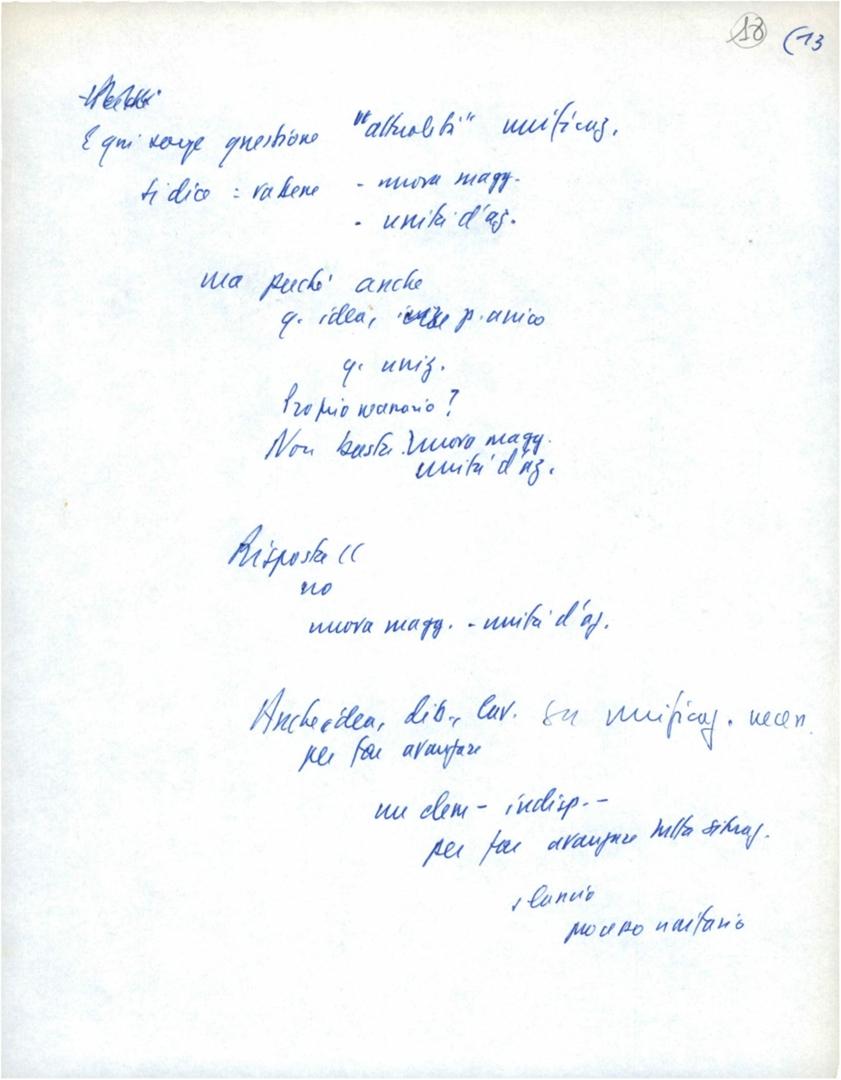 18 (13
E qui sorge questione "attualità" unificaz.
si dice : va bene - nuova magg.
- unità d'az.
ma perché anche
q. idea, p. unico
q. uniz.
Proprio necessario?
Non basta nuova magg.
unità d'az.
Risposta
no
nuova magg. - unità d'az.
Anche idea, dib., lav. su unificaz. necess.
per far avanzare
un elem - indisp. -
per far avanzare tutta situaz.
slancio
processo unitario